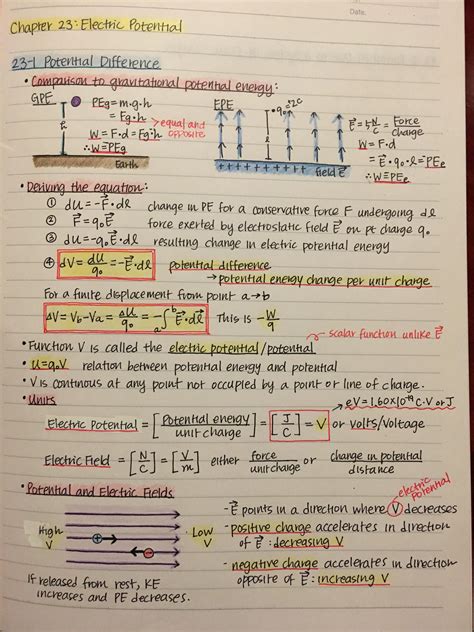 Date
Chapter 23: Electric Potential
23-1 Potential Difference
• Comparison to gravitational potential energy:
GPE
PEg = m·g·h
= Fg·h
W = F·d = Fg·h
∴ W ≡ PEg
> equal and opposite
h
Earth
EPE
• q₀ = 2C
E⃗ = 5 N/C = Force/charge
W = F·d
= E⃗·q₀·l = PEe
∴ W ≡ PEe
+ + + + + + + + + + + + field E⃗
• Deriving the equation:
① dU = -F⃗·dl change in PE for a conservative force F undergoing dl
② F⃗ = q₀E⃗ force exerted by electrostatic field E⃗ on pt charge q₀
③ dU = -q₀E⃗·dl resulting change in electric potential energy
④ dV = dU/q₀ = -E⃗·dl potential difference
→ potential energy change per unit charge
For a finite displacement from point a → b
ΔV = Vb - Va = ΔU/q₀ = -∫ₐᵇ E⃗·dl⃗ This is -W/q
- scalar function unlike E⃗
• Function V is called the electric potential/potential
• U = q₀V relation between potential energy and potential
• V is continous at any point not occupied by a point or line of charge.
• Units
eV = 1.60×10⁻¹⁹ C·V or J
Electric Potential = [Potential energy/unit charge] = [J/C] = V or volts/Voltage
Electric Field = [N/C] = [V/m] either force/unit charge or change in potential/distance
• Potential and Electric Fields
High V
+
-
Low V
If released from rest, KE
increases and PE decreases.
electric potential
- E⃗ points in a direction where V decreases
- positive charge accelerates in direction
of E⃗: decreasing V
- negative charge accelerates in direction
opposite of E⃗: increasing V